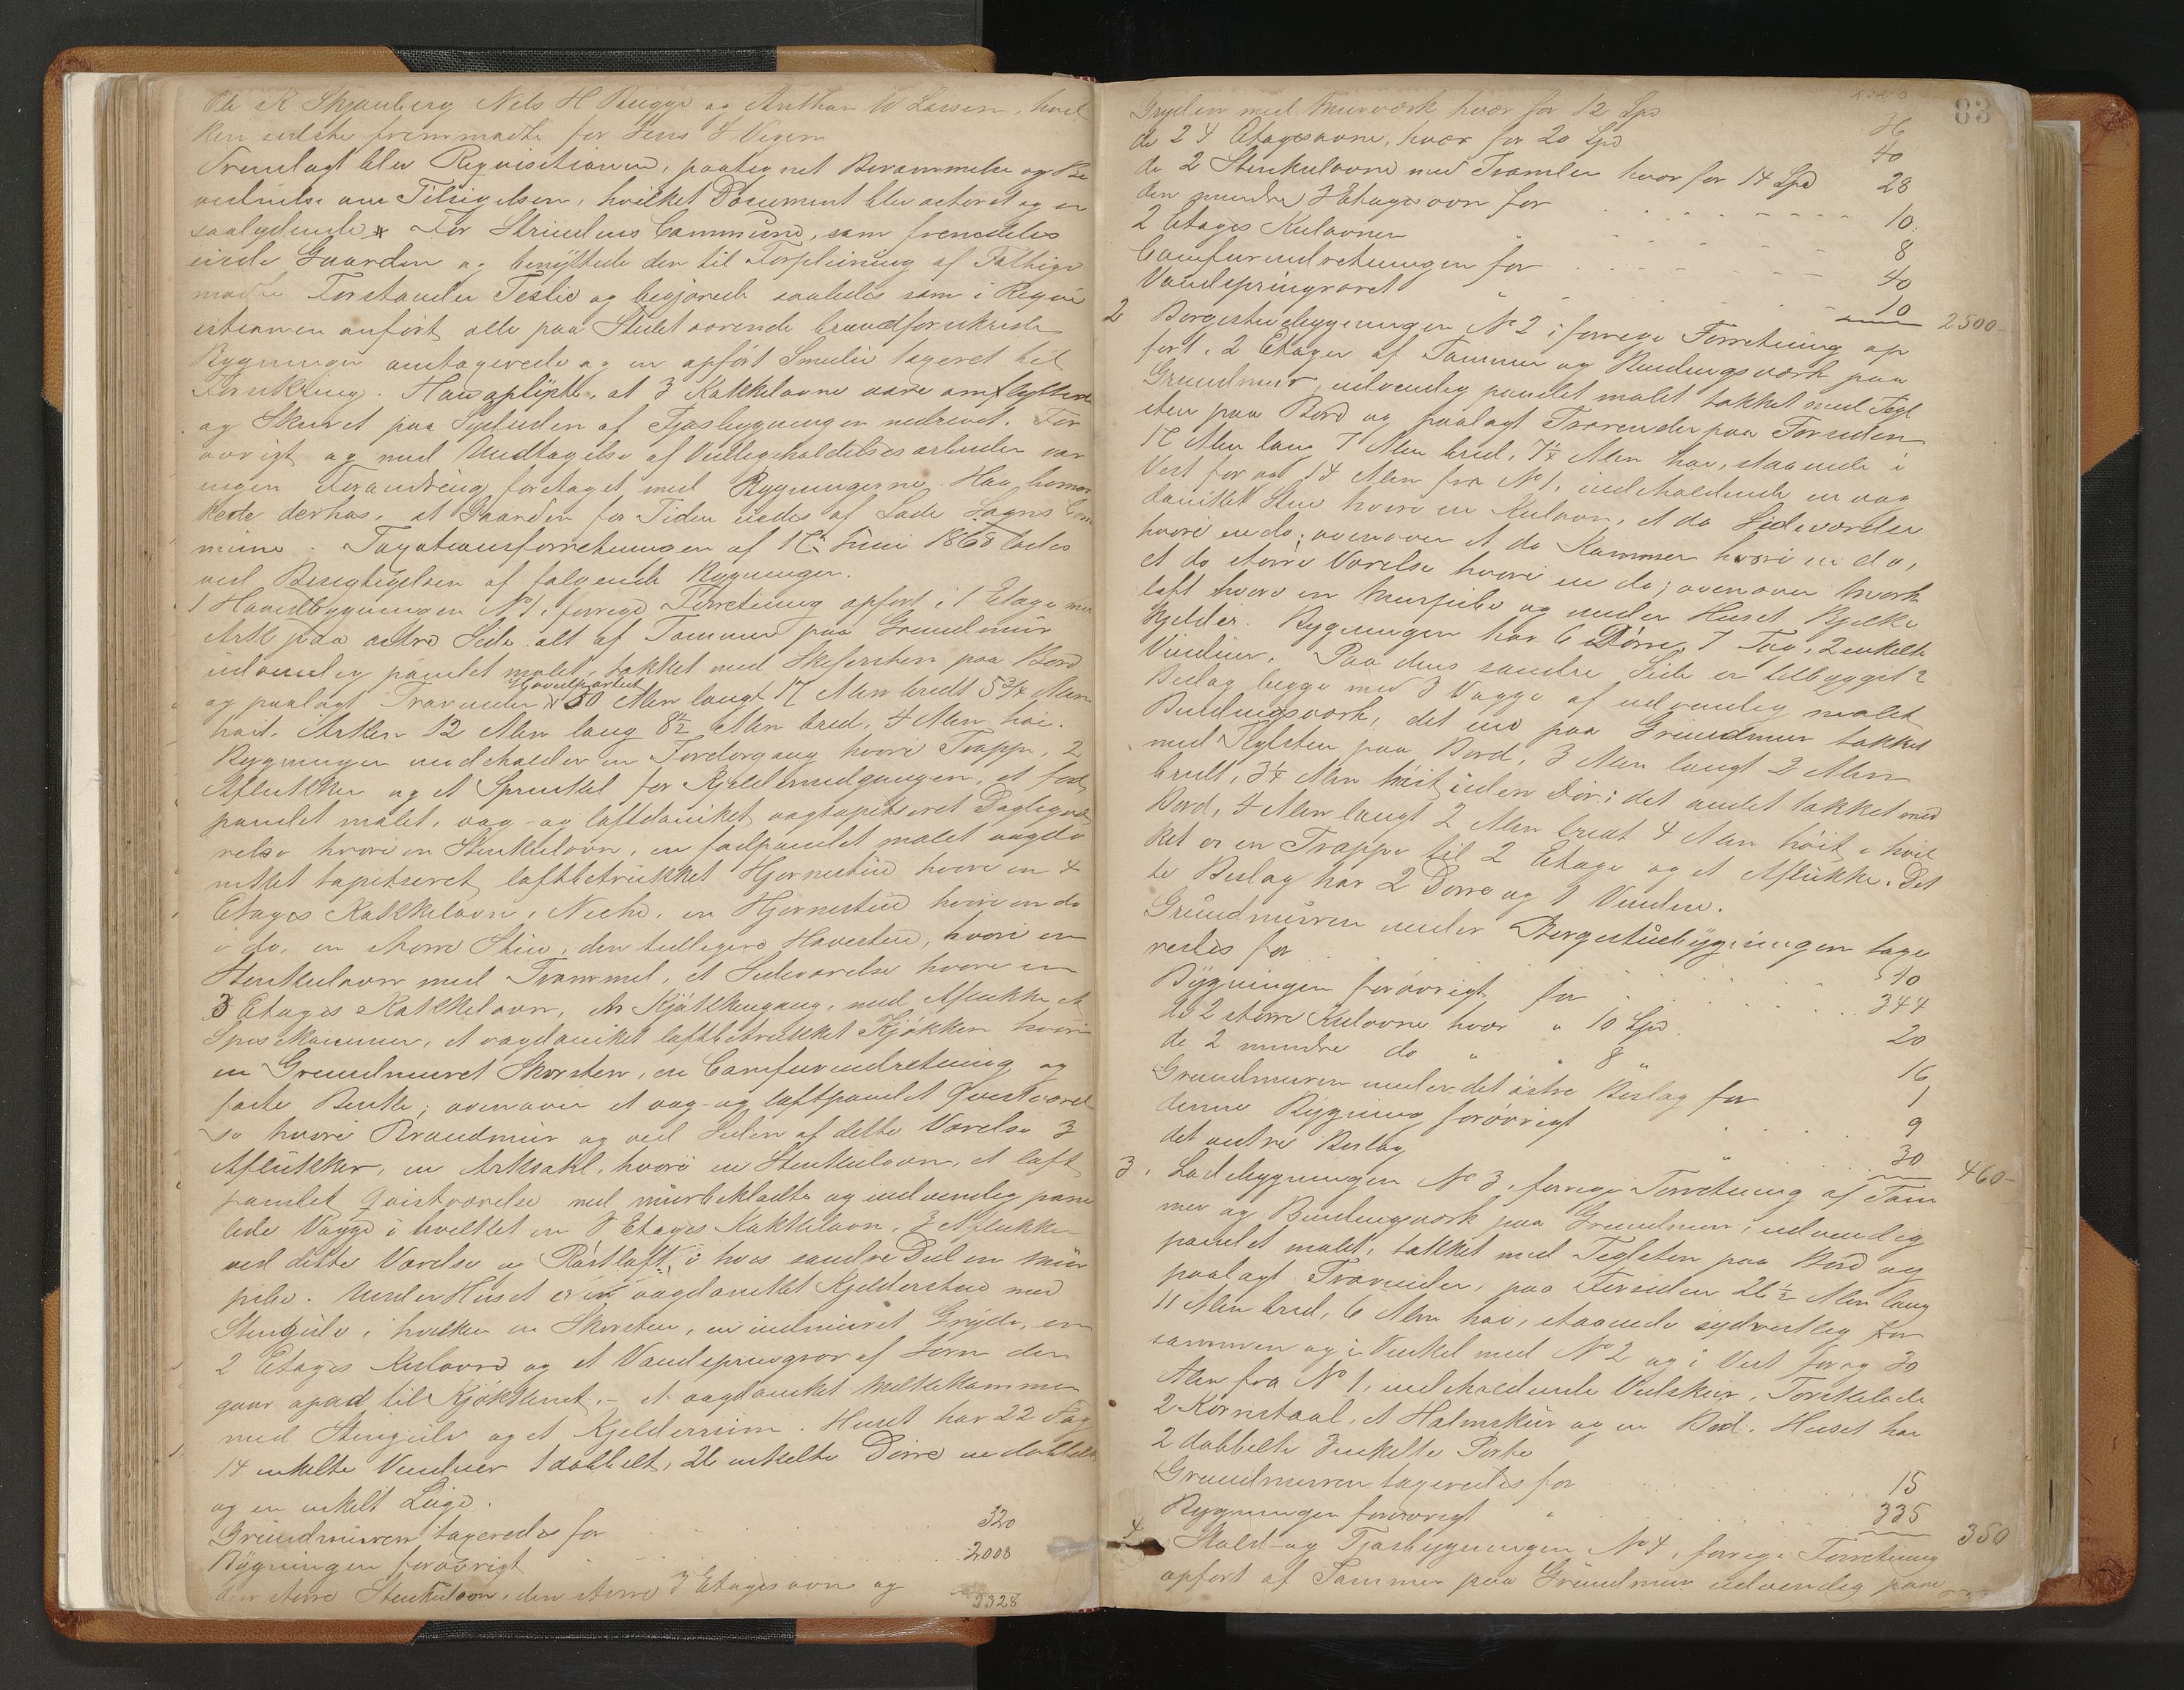 Ole K Skjanberg Nels H Bugge og Anthon W Larsen, hvil
ken sidste fremmødte for Jens J Vegen
Fremlagt blev Reqvisitionen, paategnet Berammelse og Be
vidnelse om Tilsigelsen, hvilket Document blev acteret og er
saalydende * For Strindens Commune, som fremdeles
eiede Gaarden og benyttede den til Forpleining af Fattige
mødte Forstander Teslie og begjærede saaledes som i Reqvi
sitionen anført alle paa Stedet værende brandforsikrede
Bygninger omtaxerede og en opført Smedie taxeret til
Forsikring. Han oplyste, at 3 Kakkelovne vare omflyttede
og Skuret paa Sydsiden af Fjøsbygningen nedrevet. For
øvrigt og med Undtagelse af Vedligeholdelsesarbeider var
ingen Forandring foretaget med Bygningerne. Han bemær
kede derhos, at Gaarden for Tiden eedes af Lade Sogns Com
mune. Taxationsforretningen af 17 Juni 1868 lades
ved Besigtigelsen af følgende Bygninger.
1 Hovedbygningen No 1, forrige Forretning opført i 1 Etage med
Ark paa østre Side alt af Tømmer paa Grundmur
udvendig panelet malet takket med Skifersten paa Bord
og paalagt Trærender Hovedpartiet 50 Alen langt 17 Alen bredt 5 3/4 Alen
høit. Arken 12 Alen lang 8 1/2 Alen bred, 4 Alen høi.
Bygningen indeholder en Fordørgang hvori Trappe, 2
Aflukker og et Sprinkel for Kjeldernedgangen, et fod
panelet malet, væg- og loftdaniket vægtapetseret Dagligvæ
relse hvori en Stenkulovn, en fodpanelet malet vægda
niket tapetseret loftbetrukket Hjørnestue hvori en 4
Etages Kakkelovn i Niche, en Hjørnestue hvori en do
i do, en større Stue, den tidligere Havestue, hvori en
Stenkulovn med Trommel, et Sideværelse hvori en
3 Etages Kakkelovn, en Kjøkkengang, med Aflukke et
Spiskammer, et vægdaniket loftbetrukket Kjøkken hvori
en Grundmuret Skorsten, en Comfurindretning og
faste Benke; ovenover et væg- og loftpanelet Qvistværel
se hvori Brandmur og ved Siden af dette Værelse 3
Aflukker, en Arksahl, hvori en Stenkulovn, et loft
panelet Qvistværelse med murbeklædte og indvendig pane
lede Vægge i hvilket en 3 Etages Kakkelovn, 3 Aflukker
ved dette Værelse og Røstloft, i hvis søndre Del en mur
pibe. Under Huset er en vægdaniket Kjelderstue med
Stengulv, i hvilken en Skorsten, en indmuret Gryde, en
2 Etages Kulovn og et Vandspringrør af Jern der
gaar opad til Kjøkkenet, – et vægdaniket Melkekammer
med Stengulv og et Kjelderrum. Huset har 22 Fag
14 enkelte Vinduer 1 dobbelt, 26 enkelte Dørre en dobbelt
og en enkelt Luge.
Grundmuren taxeredes for 320
Bygningen forøvrigt 2008
den større Stenkulovn, den større 3 Etagesovn og
2328
83
Gryden med Murværk hver for 12 Spd 36
de 2 4 Etagesovne, hver for 20 Spd 40
de 2 Stenkulovne med Tromler hver for 14 Spd 28
den mindre 3 Etagesovn for 10
2 Etages Kulovnen 8
Comfurindretningen for 40
Vandspringrøret " 10 2500-
2 Borgestuebygningen No 2 i forrige Forretning op
ført i 2 Etager af Tømmer og Bindingsværk paa
Grundmur, udvendig panelet malet takket med Tegl
sten paa Bord og paalagt Trærender paa Forsiden
17 Alen lang 7 Alen bred, 7 1/4 Alen høi, staaende i
Vest for og 14 Alen fra No 1, indeholdende en væg
daniket Stue hvori en Kulovn, et do Sideværelse
hvori en do; ovenover et do Kammer hvori en do,
et do større Værelse hvori en do; ovenover Mørk
loft hvori en Murpibe og under Huset Bjelke
kjelder. Bygningen har 6 Dørre 7 Fag, 2 enkelte
Vinduer. Paa dens søndre Side er tilbygget 2
Beslag begge med 3 Vægge af udvendig malet
Bindingsværk, det ene paa Grundmur takket
med Teglsten paa Bord, 3 Alen langt 2 Alen
bredt, 3 1/4 Alen høit uden Dør; det andet takket med
Bord, 4 Alen langt 2 Alen bredt 4 Alen høit i hvil
ket er en Trappe til 2 Etage og et Aflukke. Det
te Beslag har 2 Dørre og 1 Vindue.
Grundmuren under Borgestuebygningen taxe
redes for 40
Bygningen forøvrigt for 344
de 2 større Kulovne hver " 10 Spd. 20
de 2 mindre do " " 8 " 16
Grundmuren under det østre Beslag for 1
denne Bygning forøvrigt 9
det vestre Beslag " 30 460-
3. Ladebygningen No 3, forrige Forretning af Tøm
mer og Bindingsværk paa Grundmur, udvendig
panelet malet, takket med Teglsten paa Bord og
paalagt Trærender, paa Forsiden 26 1/2 Alen lang
11 Alen bred, 6 Alen høi, staaende sydvestlig for
sammen og i Vinkel med No 2 og i Vest for og 30
Alen fra No 1, indeholdende Vedskur, Torskelade
2 Kornstaal, et Halmskur og en Bod. Huset har
2 dobbelte 3 enkelte Porte
Grundmuren taxeredes for 15
Bygningen forøvrigt " 335 350
4 Stald- og Fjøsbygningen No 4, forrige Forretning
opført af Tømmer paa Grundmur udvendig pane